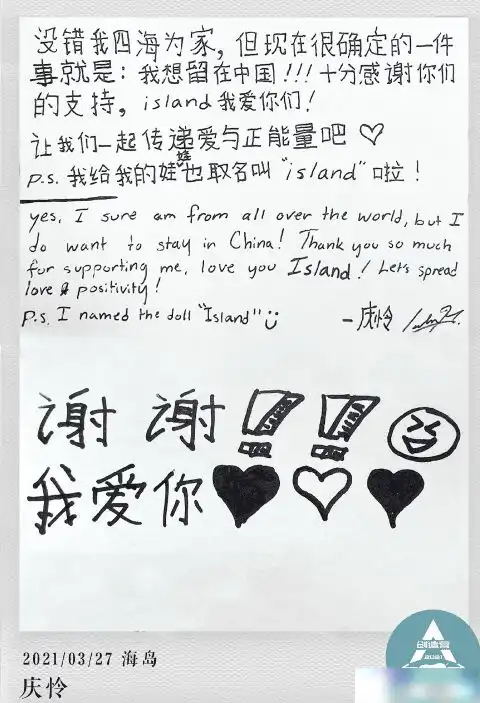 没错我四海为家，但现在很确定的一件
事就是：我想留在中国！！！十分感谢你们
的支持，island我爱你们！
让我们一起传递爱与正能量吧 ♡
p.s. 我给我的娃娃也取名叫"island"啦！
yes, I sure am from all over the world, but I
do want to stay in China! Thank you so much
for supporting me, love you Island! Let's spread
love & positivity!
p.s. I named the doll "Island" :)
-庆怜
谢谢！！
我爱你♥♡♥
2021/03/27 海岛
庆怜
创造营
2021